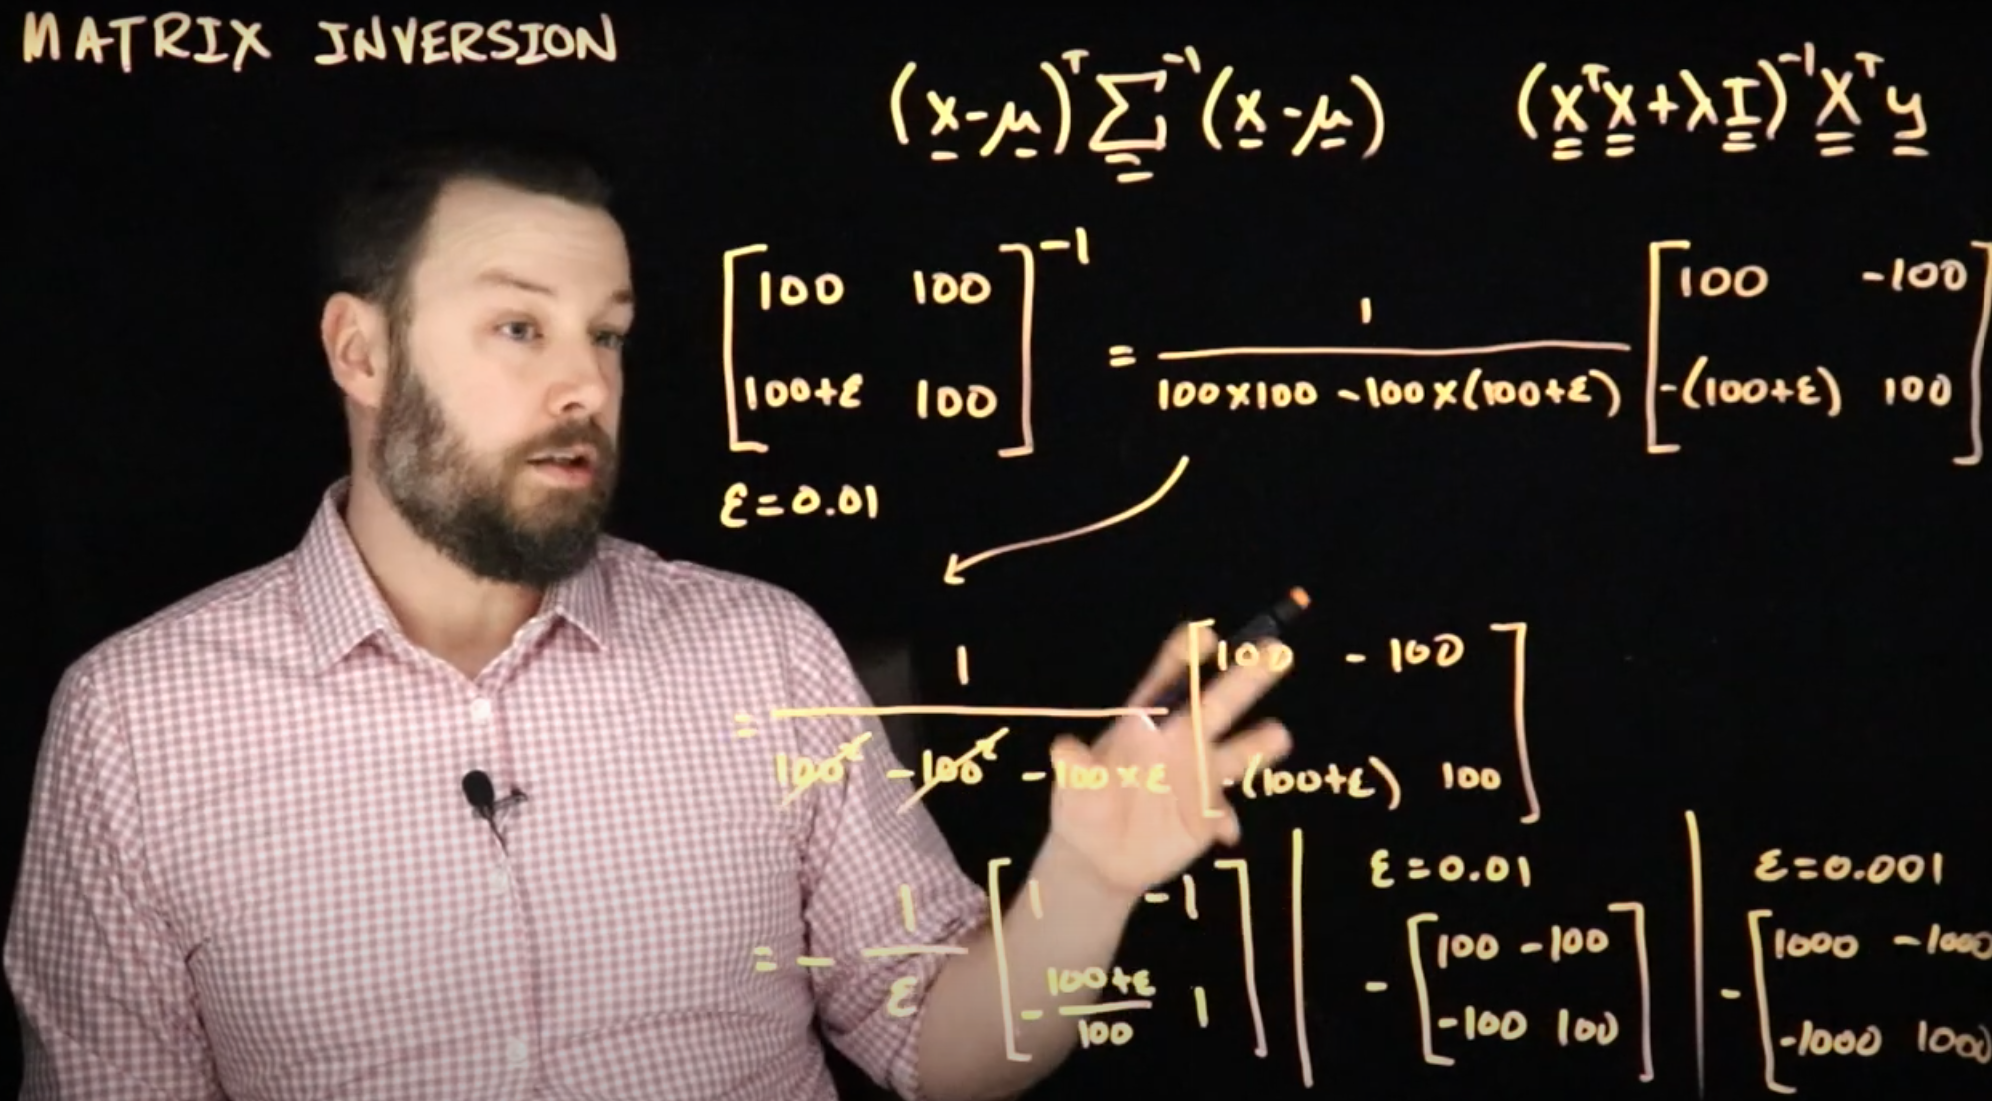 MATRIX INVERSION
(x-μ)ᵀ Σ⁻¹ (x-μ)
(XᵀX+λI)⁻¹Xᵀy
[100 100
100+ε 100]⁻¹ = 1 / (100×100 -100×(100+ε)) [100 -100
-(100+ε) 100]
ε=0.01
= 1 / (100² -100² -100×ε) [100 -100
-(100+ε) 100]
= - 1/ε [1 -1
-(100+ε)/100 1]
ε=0.01
- [100 -100
-100 100]
ε=0.001
- [1000 -1000
-1000 1000]